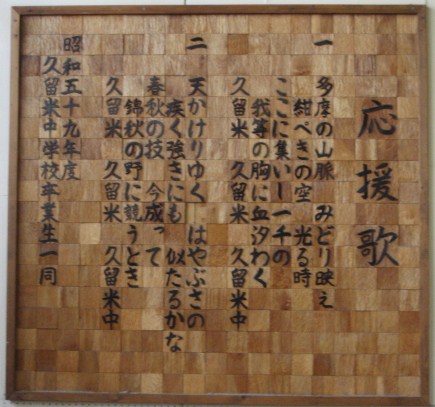 応援歌
一 多摩の山脈 みどり映え
紺ぺきの空 光る時
ここに集いし一千の
我等の胸に血汐わく
久留米 久留米 久留米中
二 天かけりゆく はやぶさの
疾く強きにも 似たるかな
春秋の技 今成って
錦秋の野に競うとき
久留米 久留米 久留米中
昭和五十九年度
久留米中学校卒業生一同